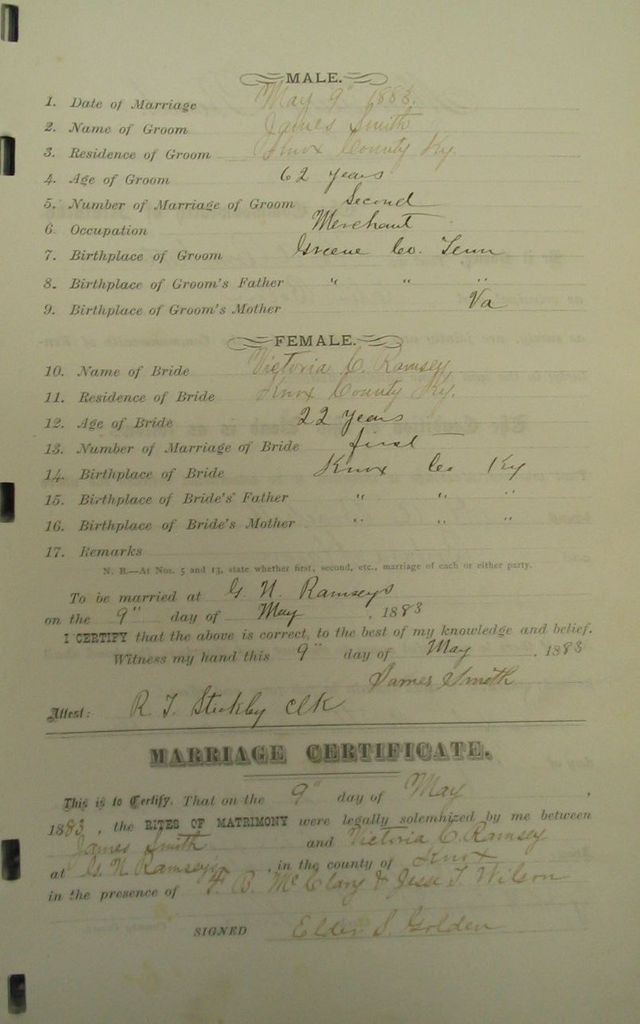 MALE.
1. Date of Marriage May 9" 1883.
2. Name of Groom James Smith
3. Residence of Groom Knox County Ky.
4. Age of Groom 62 years
5. Number of Marriage of Groom Second
6. Occupation Merchant
7. Birthplace of Groom Greene Co. Tenn
8. Birthplace of Groom's Father " " "
9. Birthplace of Groom's Mother Va
FEMALE.
10. Name of Bride Victoria C. Ramsey
11. Residence of Bride Knox County Ky.
12. Age of Bride 22 years
13. Number of Marriage of Bride first
14. Birthplace of Bride Knox Co Ky
15. Birthplace of Bride's Father " " "
16. Birthplace of Bride's Mother " " "
17. Remarks
N. B.—At Nos. 5 and 13, state whether first, second, etc., marriage of each or either party.
To be married at G. N. Ramseys
on the 9" day of May , 1883
I CERTIFY that the above is correct, to the best of my knowledge and belief.
Witness my hand this 9" day of May , 1883
James Smith
Attest: R T. Stickley Clk
MARRIAGE CERTIFICATE.
This is to Certify, That on the 9" day of May ,
1883, the RITES OF MATRIMONY were legally solemnized by me between
James Smith and Victoria C. Ramsey
at G. N Ramseys , in the county of Knox
in the presence of B. McClary & Jesse T. Wilson
SIGNED Elder S. Golden